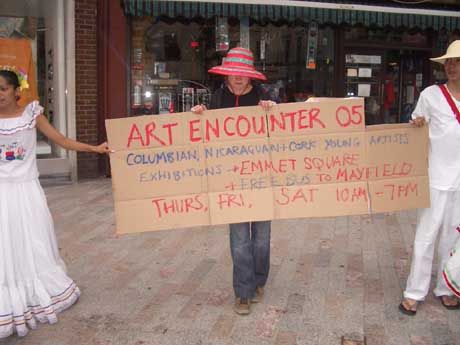 ART ENCOUNTER 05
COLUMBIAN, NICARAGUAN + CORK YOUNG ARTISTES
EXHIBITIONS → EMMET SQUARE
+ FREE BUS TO MAYFIELD
THURS, FRI, SAT 10AM - 7PM